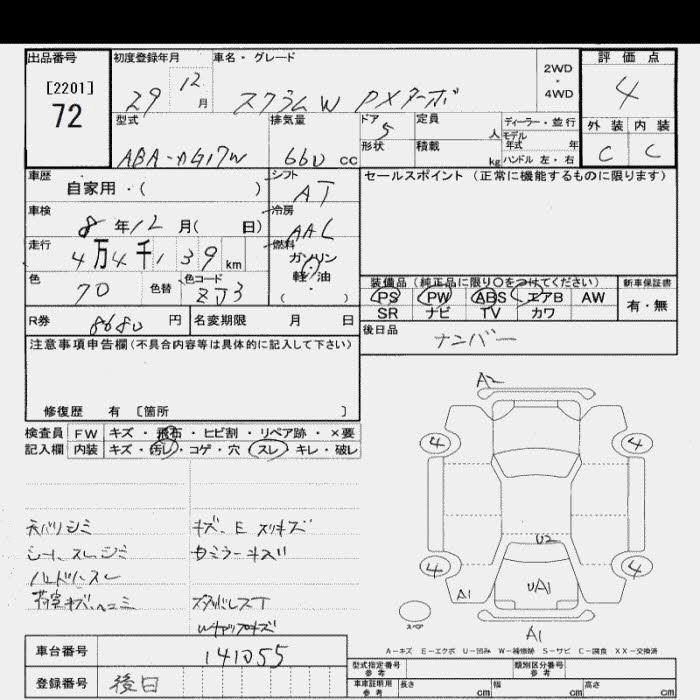 出品番号
[2201]
72
初度登録年月
29 12月
車名・グレード
スクラムW PXターボ
2WD
・
4WD
評価点
4
外装 内装
C C
型式
ABA-DG17W
排気量
660 cc
ドア 5
形状
定員 人
積載 kg
ディーラー・並行
モデル年式 年
ハンドル 左・右
車歴
自家用・( )
シフト
AT
車検
8年12月( 日)
冷房
AAC
走行
4万4千139 km
燃料
ガソリン
軽油
( ・ )
色
70
色替
色コード
ZJ3
R券 8680 円
名変期限 月 日
セールスポイント (正常に機能するものに限ります)
装備品 (純正品に限り○をつけてください)
PS PW ABS エアB AW
SR ナビ TV カワ
新車保証書
有・無
後日品
ナンバー
注意事項申告欄(不具合内容等は具体的に記入して下さい)
修復歴 有 [箇所 ]
検査員記入欄
FW キズ・飛石・ヒビ割・リペア跡・×要
内装 キズ・汚レ・コゲ・穴・スレ・キレ・破レ
天バリシミ
シート、スレ、シミ
ハンドルスレ
荷室キズ、ヘコミ
キズ、E スリキズ
スタッドレスT
Wキャップキズ
A2
4 4
U2
4 4
A1
UA1
A1
スペア
A-キズ E-エクボ U-凹み W-補修跡 S-サビ C-腐食 XX-交換済
車台番号
141055
登録番号
後日
型式指定番号
参考
類別区分番号
参考
車車証明用
参考
長さ cm
幅 cm
高さ cm